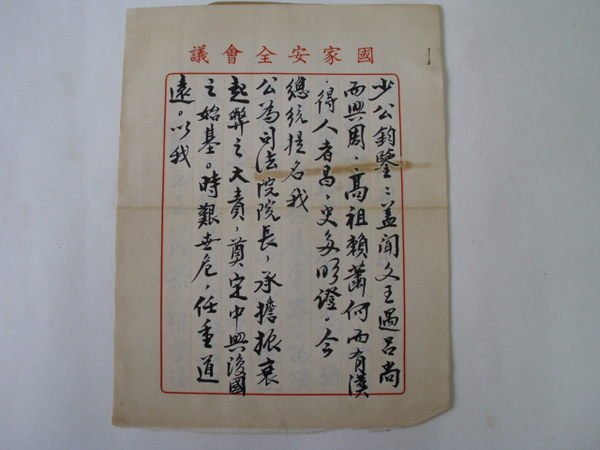 國家安全會議
少公鈞鑒：蓋聞文王遇呂尚
而興周，高祖賴蕭何而有漢
，得人者昌，史多明證。今
總統提名我
公為司法院院長，承擔振衰
起弊之天責，奠定中興復國
之始基。時艱世危，任重道
遠。以我